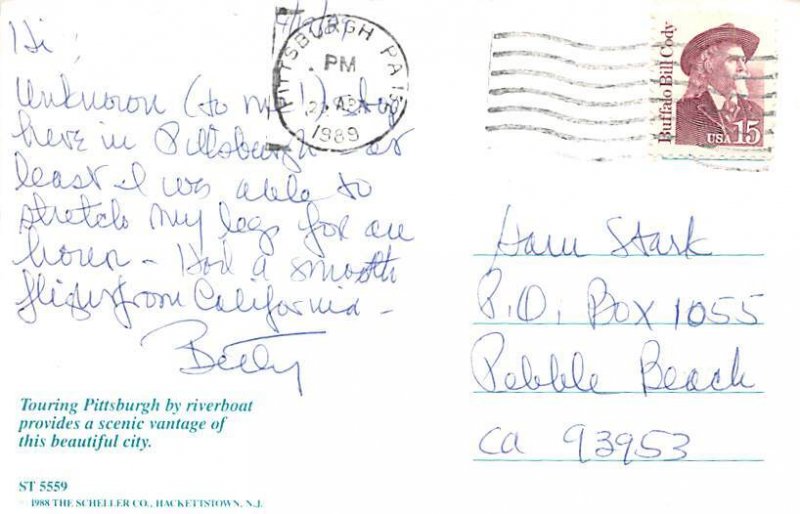 Hi,
Unknown (to me!) stop
here in Pittsburgh - at
least I was able to
stretch my legs for an
hour - Had a smooth
flight from California -
Betty
Touring Pittsburgh by riverboat
provides a scenic vantage of
this beautiful city.
ST 5559
1988 THE SCHELLER CO., HACKETTSTOWN, N.J.
PITTSBURGH PA 15
PM
1989
Buffalo Bill Cody
USA 15
Stark
P.O. Box 1055
Pebble Beach
CA 93953